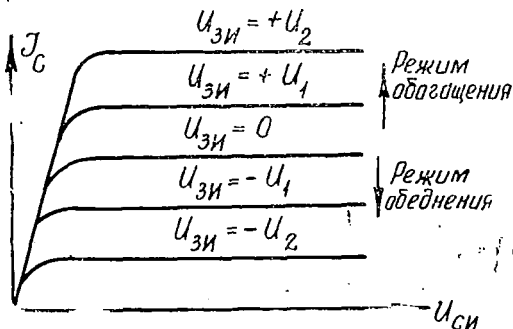 I_C
U_ЗИ = +U_2
U_ЗИ = +U_1
U_ЗИ = 0
U_ЗИ = -U_1
U_ЗИ = -U_2
Режим
обогащения
Режим
обеднения
U_СИ